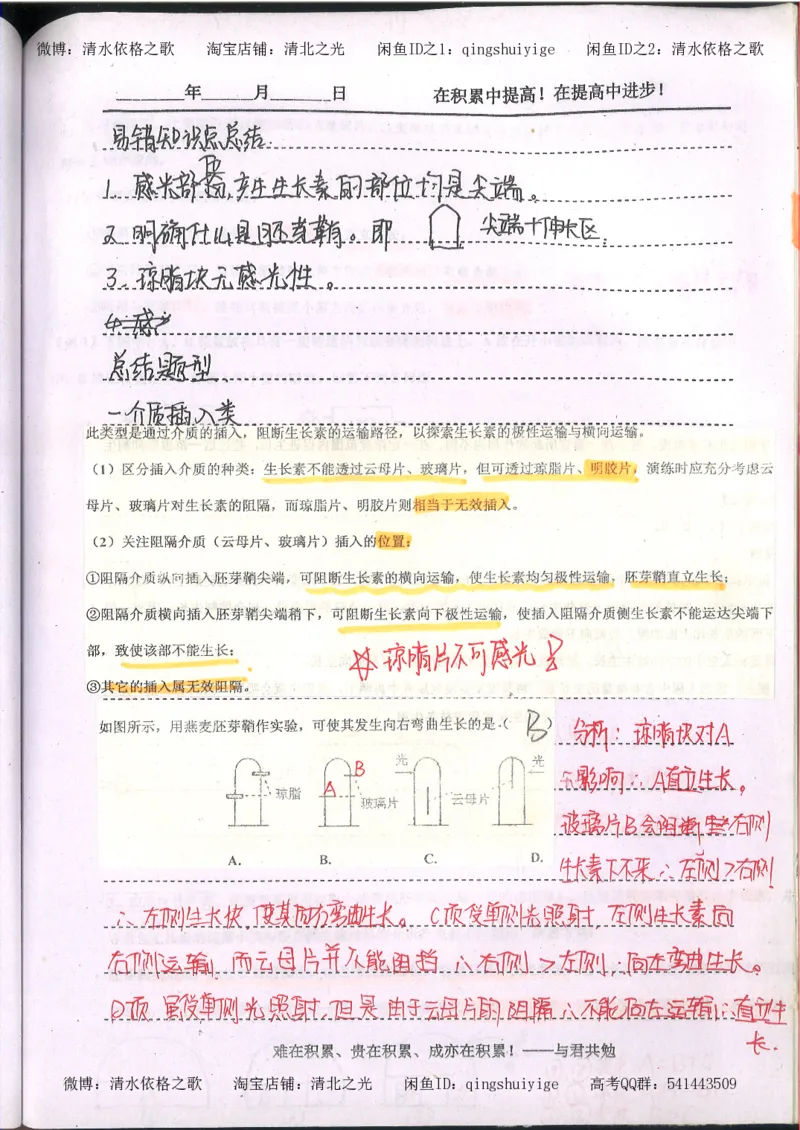 微博：清水依格之歌 淘宝店铺：清北之光 闲鱼ID之1：qingshuiyige 闲鱼ID之2：清水依格之歌
年 月 日 在积累中提高！在提高中进步！
易错知识点总结
1. 感光部位,产生生长素的部位均是尖端。
2. 明确什么是胚芽鞘。即 尖端+伸长区.
3. 琼脂块无感光性。
总结题型
一介质插入类
此类型是通过介质的插入，阻断生长素的运输路径，以探索生长素的极性运输与横向运输。
（1）区分插入介质的种类：生长素不能透过云母片、玻璃片，但可透过琼脂片、明胶片，演练时应充分考虑云
母片、玻璃片对生长素的阻隔，而琼脂片、明胶片则相当于无效插入。
（2）关注阻隔介质（云母片、玻璃片）插入的位置：
①阻隔介质纵向插入胚芽鞘尖端，可阻断生长素的横向运输，使生长素均匀极性运输，胚芽鞘直立生长；
②阻隔介质横向插入胚芽鞘尖端稍下，可阻断生长素向下极性运输，使插入阻隔介质侧生长素不能运达尖端下
部，致使该部不能生长；
☆ 琼脂片不可感光
③其它的插入属无效阻隔。
如图所示，用燕麦胚芽鞘作实验，可使其发生向右弯曲生长的是（ B ）
分析：琼脂块对A
无影响∴A直立生长。
玻璃片B会阻断右侧
生长素下不来∴左侧>右侧
光 光
A B
琼脂 玻璃片 云母片
A. B. C. D.
∴左侧生长快,使其向右弯曲生长。C项受单侧光照射,左侧生长素向
右侧运输,而云母片并不能阻挡,∴右侧>左侧∴向左弯曲生长。
D项 虽受单侧光照射,但是由于云母片的阻隔∴不能向左运输∴直立生
长.
难在积累、贵在积累、成亦在积累！——与君共勉
微博：清水依格之歌 淘宝店铺：清北之光 闲鱼ID：qingshuiyige 高考QQ群：541443509